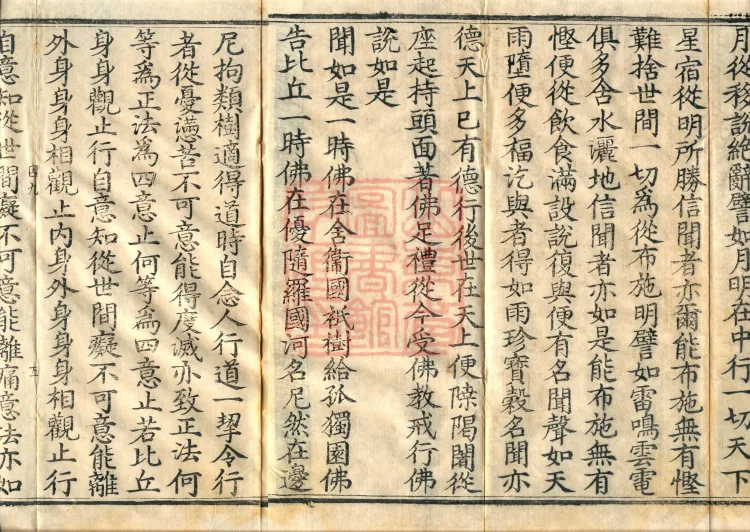 月從移說絶辭譬如月明在中行一切天下
星宿從明所勝信聞者亦爾能布施無有慳
難捨世間一切爲從布施明譬如雷鳴雲電
俱多含水灑地信聞者亦如是能布施無有
慳便從飲食滿設說復與便有名聞聲如天
雨墮便多福訖與者得如雨珍寶穀名聞亦
德天上已有德行後世在天上便從
座起持頭面著佛足禮從今受佛教戒行佛
說如是
聞如是一時佛在舍衞國祇樹給孤獨園佛
告比丘一時佛在優隨羅國河名尼然在邊
尼拘類樹適得道時自念人行道一挈令行
者從憂懣苦不可意能得度滅亦致正法何
等爲正法爲四意止何等爲四意止若比丘
身身觀止行自意知從世間癡不可意能離
外身身身相觀止内身外身身身相觀止行
四九 五
自意知從世間癡不可意能離痛意法亦如